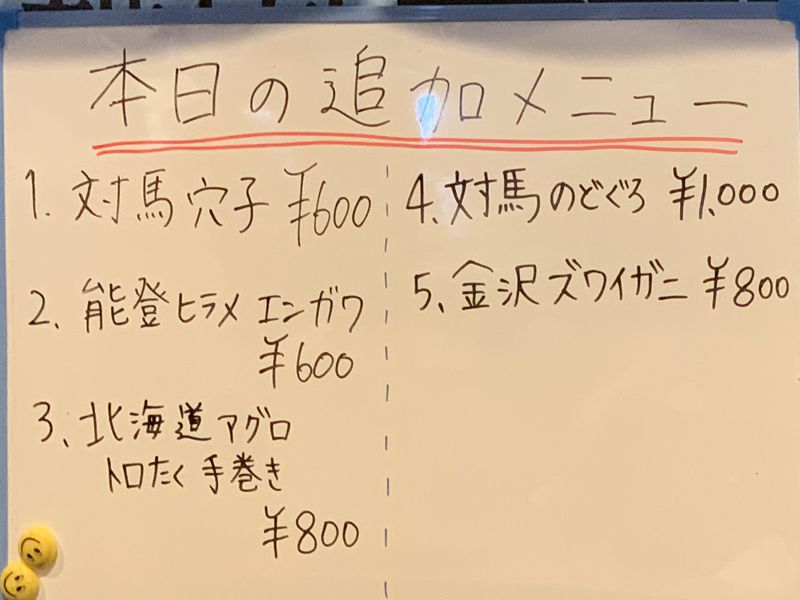 本日の追加メニュー
1. 対馬穴子 ¥600
2、能登ヒラメ エンガワ
¥600
3、北海道アグロ
トロたく手巻き
¥800
4、対馬のどぐろ ¥1,000
5、金沢ズワイガニ ¥800